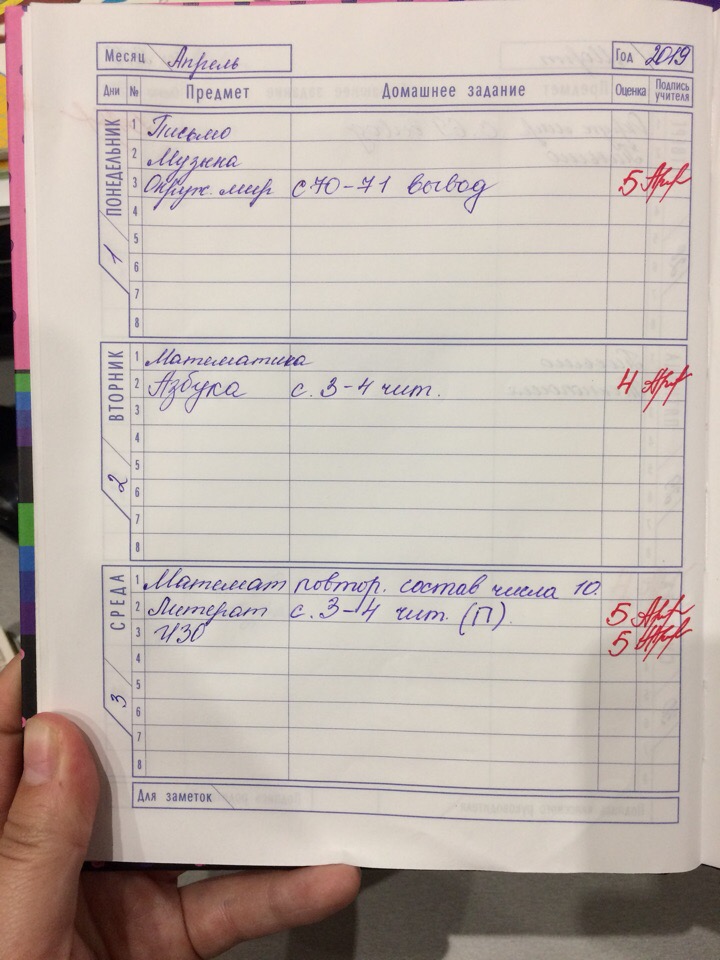 Месяц Апрель Год 2019
Дни № Предмет Домашнее задание Оценка Подпись учителя
ПОНЕДЕЛЬНИК 1
1 Письмо
2 Музыка
3 Окруж. мир с 70-71 вывод 5
4
5
6
7
8
ВТОРНИК 2
1 Математика
2 Азбука с. 3-4 чит. 4
3
4
5
6
7
8
СРЕДА 3
1 Математ повтор. состав числа 10.
2 Литерат с. 3-4 чит. (П). 5
3 ИЗО 5
4
5
6
7
8
Для заметок